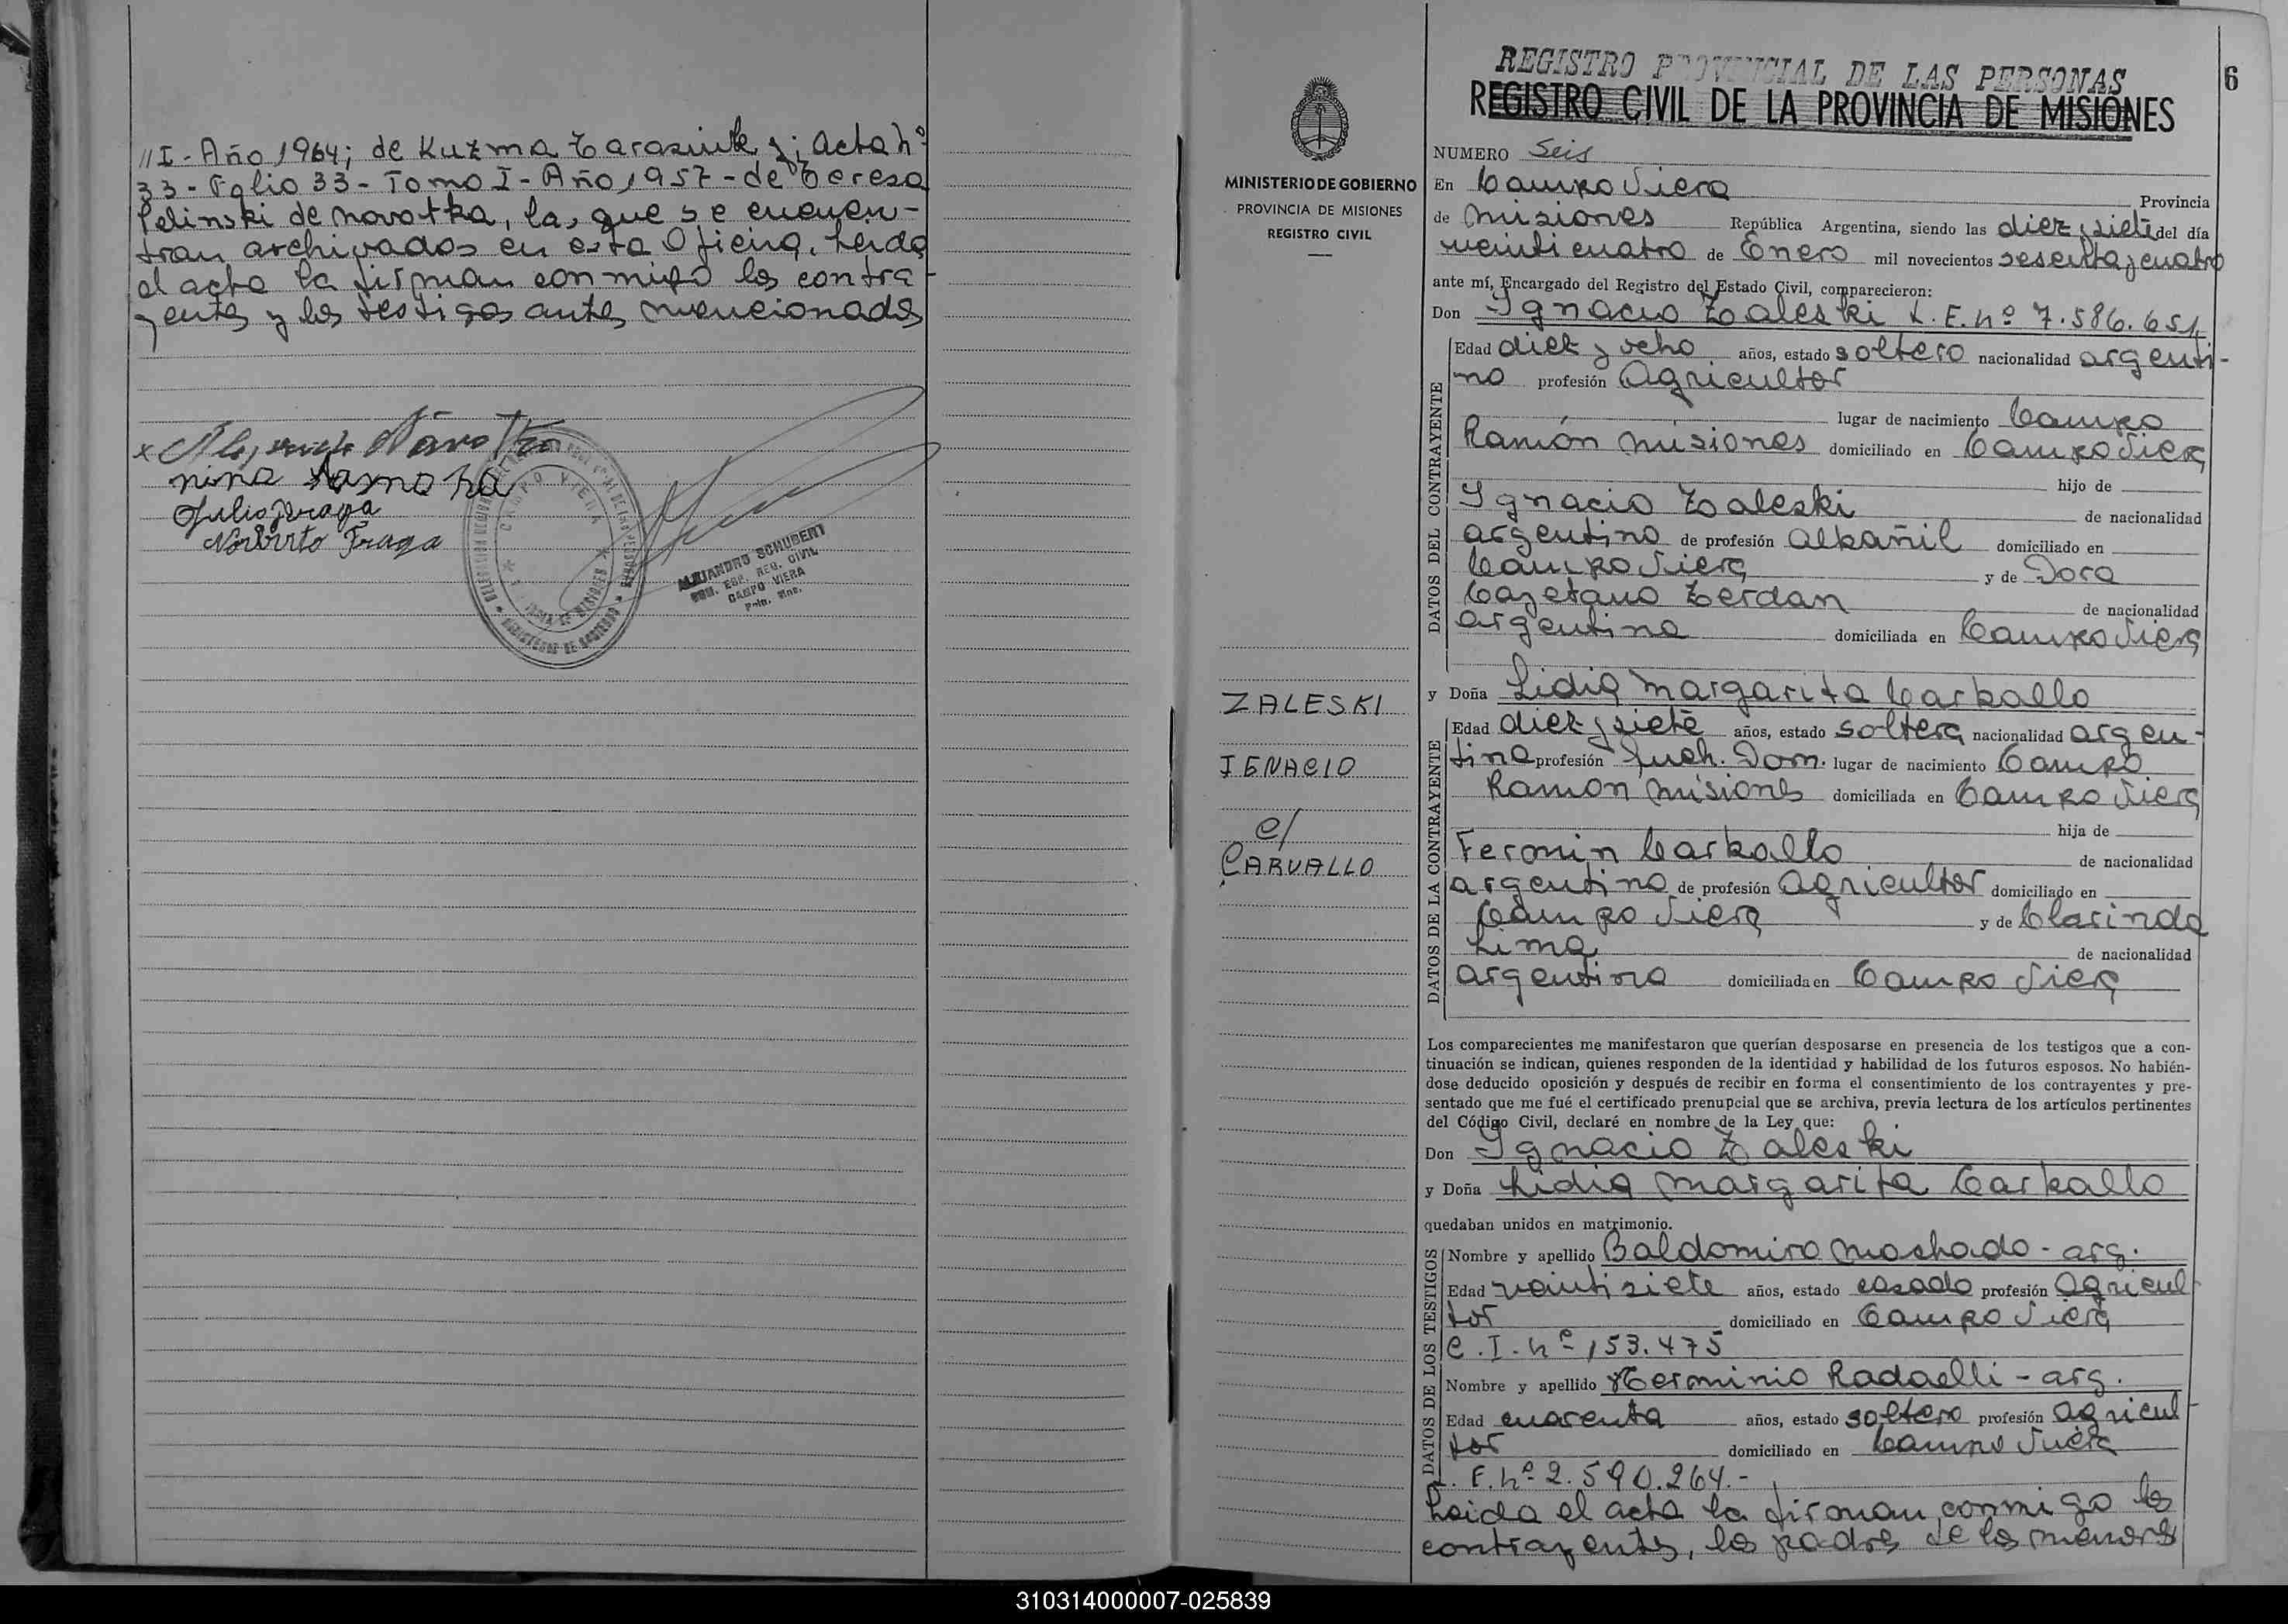 // I - Año 1964; de Kuzma Tarasiuk y; Acta nº
33 - Folio 33 - Tomo I - Año 1957 - de Teresa
Pelinski de Novotka, las que se encuen-
tran archivados en esta Oficina. Leida
el acta la firman conmigo los contra-
yentes y los testigos antes mencionados
Nina
Julio Fraga
Norberto Fraga
CAMPO VIERA
ALEJANDRO SCHUBERT
ENC. REG. CIVIL
CAMPO VIERA
MINISTERIO DE GOBIERNO
PROVINCIA DE MISIONES
REGISTRO CIVIL
ZALESKI
IGNACIO
c/
CARVALLO
6
REGISTRO PROVINCIAL DE LAS PERSONAS
REGISTRO CIVIL DE LA PROVINCIA DE MISIONES
NUMERO Seis
En Campo Viera Provincia
de Misiones República Argentina, siendo las diez y siete del día
veinticuatro de Enero mil novecientos sesenta y cuatro
ante mí, Encargado del Registro del Estado Civil, comparecieron:
Don Ignacio Zaleski L.E. nº 7.586.651
DATOS DEL CONTRAYENTE
Edad diez y ocho años, estado soltero nacionalidad argenti-
no profesión Agricultor
lugar de nacimiento Campo
Ramón Misiones domiciliado en Campo Viera
hijo de
Ignacio Zaleski de nacionalidad
argentino de profesión Albañil domiciliado en
Campo Viera y de Dora
Cayetano Zerdan de nacionalidad
argentina domiciliada en Campo Viera
y Doña Lidia Margarita Carballo
DATOS DE LA CONTRAYENTE
Edad diez y siete años, estado soltera nacionalidad argen-
tina profesión Queh. Dom. lugar de nacimiento Campo
Ramon Misiones domiciliada en Campo Viera
hija de
Fermin Carballo de nacionalidad
argentino de profesión Agricultor domiciliado en
Campo Viera y de Clarinda
Lima de nacionalidad
argentina domiciliada en Campo Viera
Los comparecientes me manifestaron que querían desposarse en presencia de los testigos que a con-
tinuación se indican, quienes responden de la identidad y habilidad de los futuros esposos. No habién-
dose deducido oposición y después de recibir en forma el consentimiento de los contrayentes y pre-
sentado que me fué el certificado prenupcial que se archiva, previa lectura de los artículos pertinentes
del Código Civil, declaré en nombre de la Ley que:
Don Ignacio Zaleski
y Doña Lidia Margarita Carballo
quedaban unidos en matrimonio.
DATOS DE LOS TESTIGOS
Nombre y apellido Baldomiro Machado - arg.
Edad veintisiete años, estado casado profesión Agricul-
tor domiciliado en Campo Viera
C.I. nº 153.475
Nombre y apellido Herminio Radaelli - arg.
Edad cuarenta años, estado soltero profesión Agricul-
tor domiciliado en Campo Viera
L.E. nº 2.590.264.-
Leida el acta la firman conmigo los
contrayentes, los padres de los menores
310314000007-025839